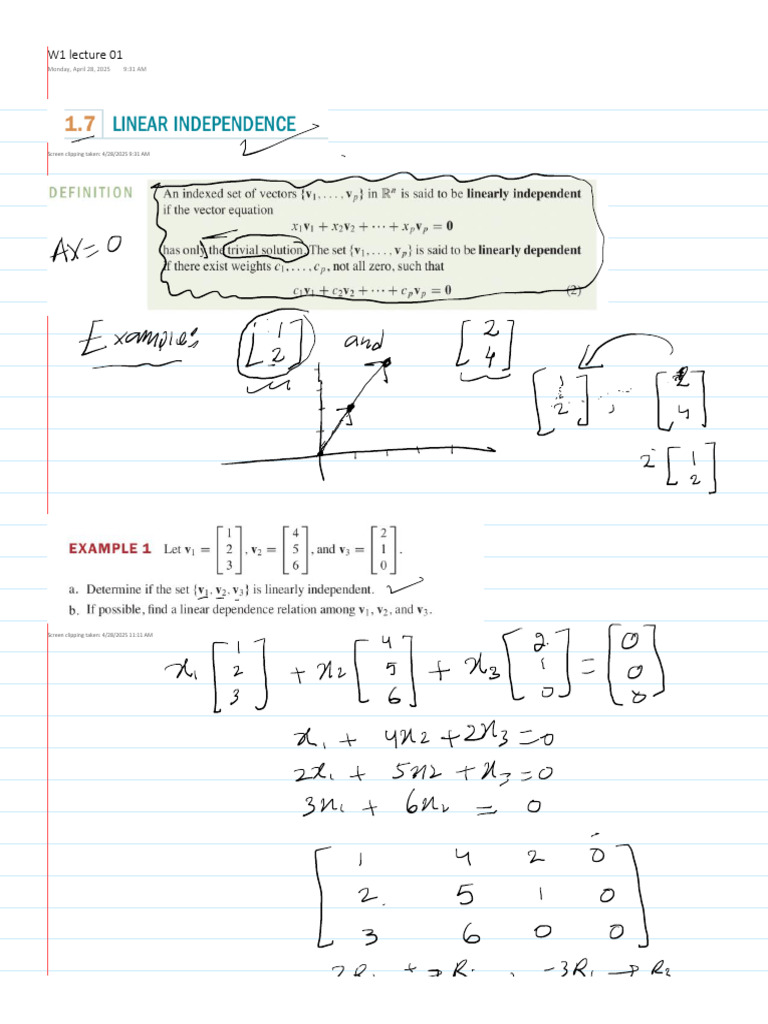 W1 lecture 01
Monday, April 28, 2025 9:31 AM
1.7 LINEAR INDEPENDENCE
Screen clipping taken: 4/28/2025 9:31 AM
DEFINITION
An indexed set of vectors {v₁, . . . , vₚ} in ℝⁿ is said to be linearly independent
if the vector equation
x₁v₁ + x₂v₂ + ⋯ + xₚvₚ = 0
AX = 0
has only the trivial solution. The set {v₁, . . . , vₚ} is said to be linearly dependent
if there exist weights c₁, . . . , cₚ, not all zero, such that
c₁v₁ + c₂v₂ + ⋯ + cₚvₚ = 0 (2)
Examples [1 2] and [2 4]
[1 2] , [2 4]
2 [1 2]
EXAMPLE 1 Let v₁ = [1 2 3], v₂ = [4 5 6], and v₃ = [2 1 0].
a. Determine if the set {v₁, v₂, v₃} is linearly independent.
b. If possible, find a linear dependence relation among v₁, v₂, and v₃.
Screen clipping taken: 4/28/2025 11:11 AM
x₁ [1 2 3] + x₂ [4 5 6] + x₃ [2 1 0] = [0 0 0]
x₁ + 4x₂ + 2x₃ = 0
2x₁ + 5x₂ + x₃ = 0
3x₁ + 6x₂ = 0
1 4 2 0
2 5 1 0
3 6 0 0
-3R₁ → R₂